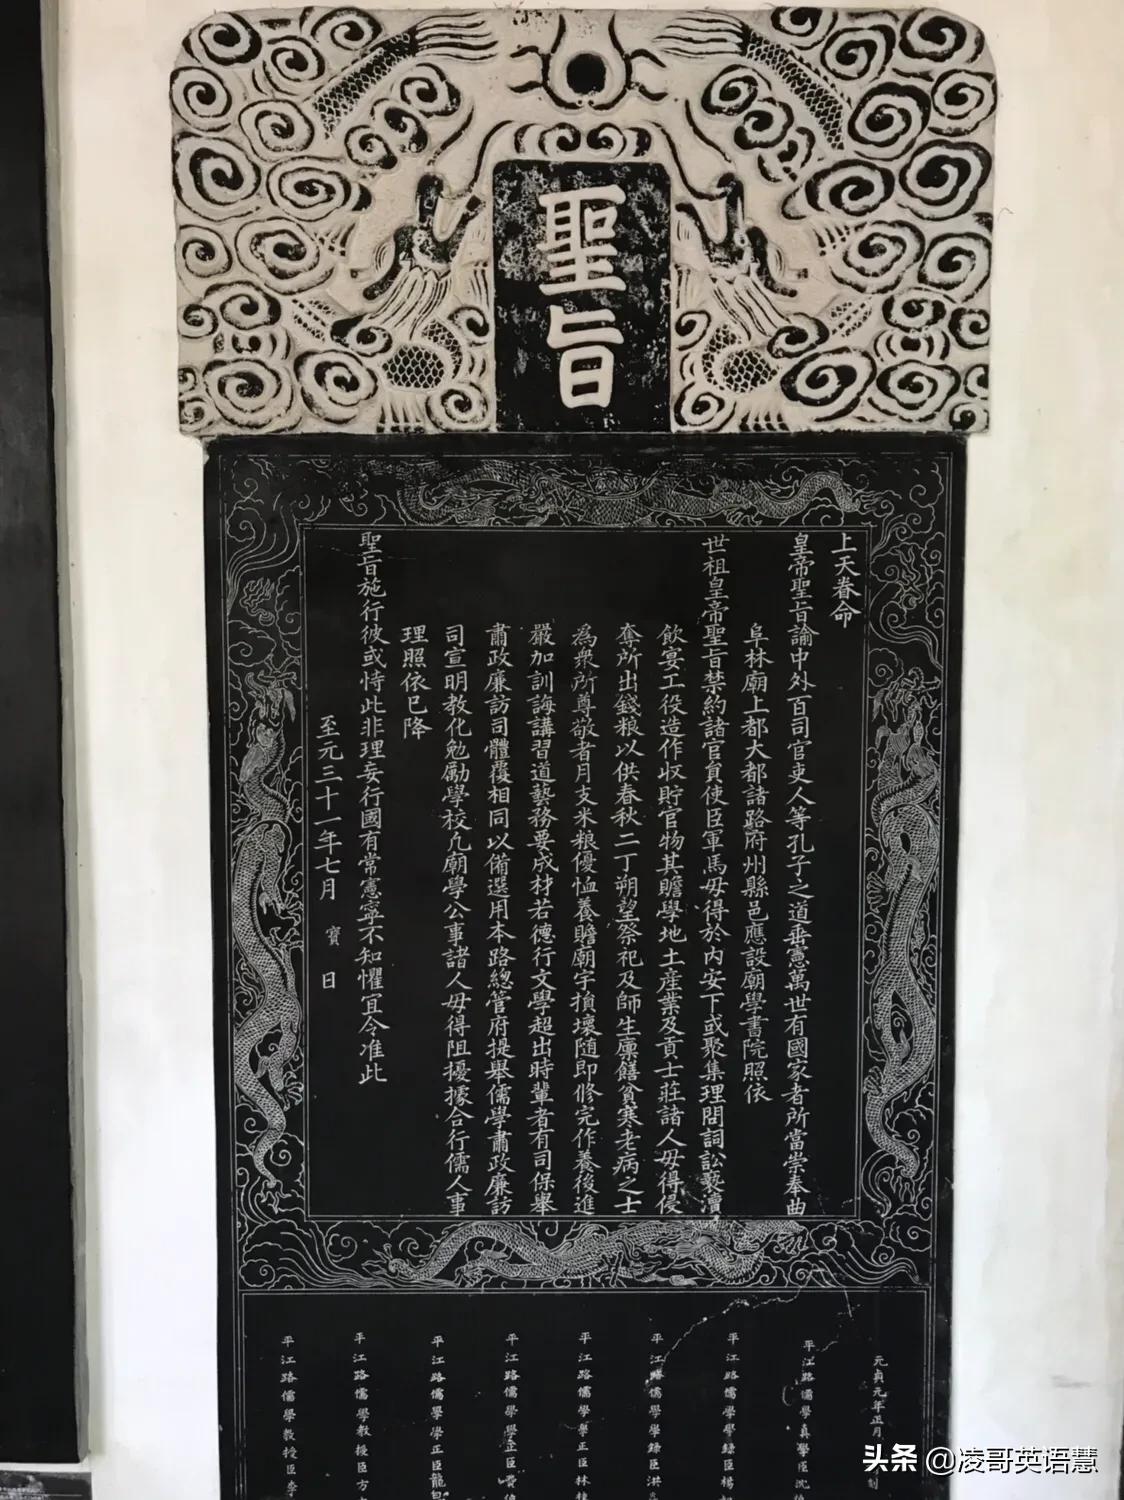 聖旨
上天眷命
皇帝聖旨諭中外百司官吏人等孔子之道垂憲萬世有國家者所當崇奉曲
阜林廟上都大都諸路府州縣邑應設廟學書院照依
世祖皇帝聖旨禁約諸官員使臣軍馬毋得於內安下或聚集理問詞訟褻瀆
飲宴工役造作收貯官物其贍學地土產業及貢士莊諸人毋得侵
奪所出錢粮以供春秋二丁朔望祭祀及師生廩饍貧寒老病之士
為衆所尊敬者月支米粮優恤養贍廟宇損壞隨即修完作養後進
嚴加訓誨講習道藝務要成材若德行文學超出時輩者有司保舉
肅政廉訪司體覆相同以備選用本路總管府提舉儒學肅政廉訪
司宣明教化勉勵學校凢廟學公事諸人毋得阻擾據合行儒人事
理照依已降
聖旨施行彼或恃此非理妄行國有常憲寧不知懼宜令准此
至元三十一年七月 寳 日
元貞元年正月 刻
平江路儒學直學臣沈
平江路儒學學錄臣楊
平江路儒學學錄臣洪
平江路儒學學正臣林
平江路儒學學正臣費
平江路儒學學正臣龍
平江路儒學教授臣方
平江路儒學教授臣李
头条 @凌哥英语慧